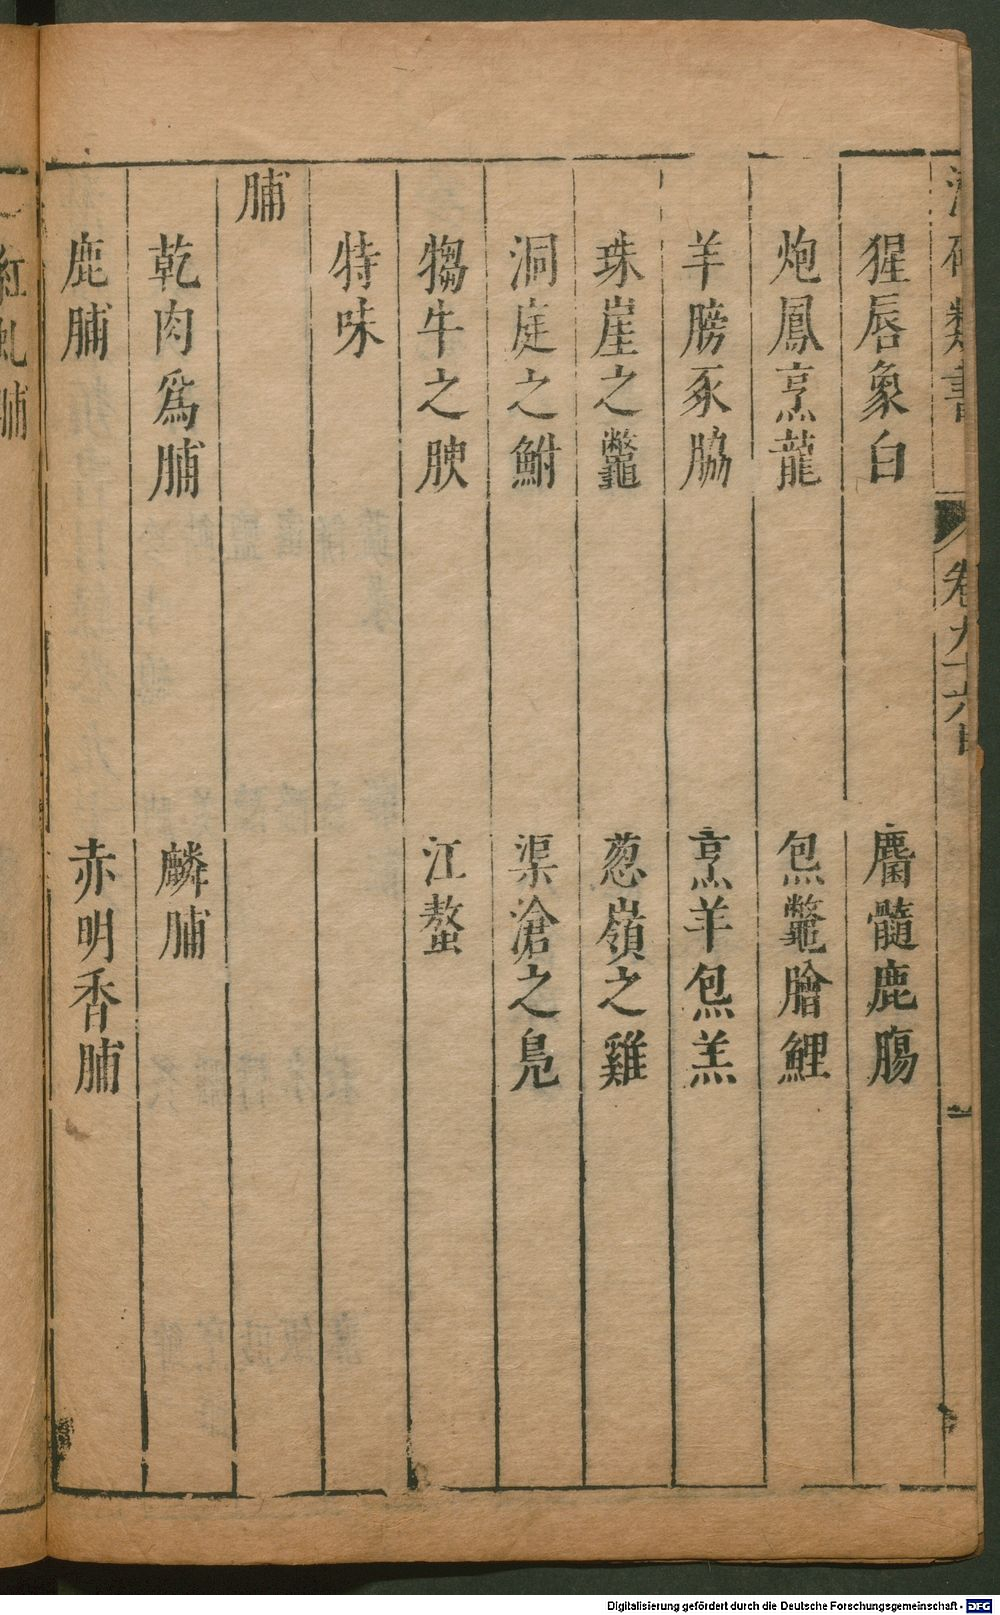 卷九十六目
猩唇象白　麕髓鹿腸
炮鳳烹龍　炰鼈膾鯉
羊膀豕脇　烹羊炰羔
珠崖之鼈　葱嶺之雞
洞庭之鮒　渠滄之鳧
犓牛之腴　江螯
特味
脯
乾肉爲脯　麟脯
鹿脯　赤明香脯
紅虬脯
Digitalisierung gefördert durch die Deutsche Forschungsgemeinschaft - DFG